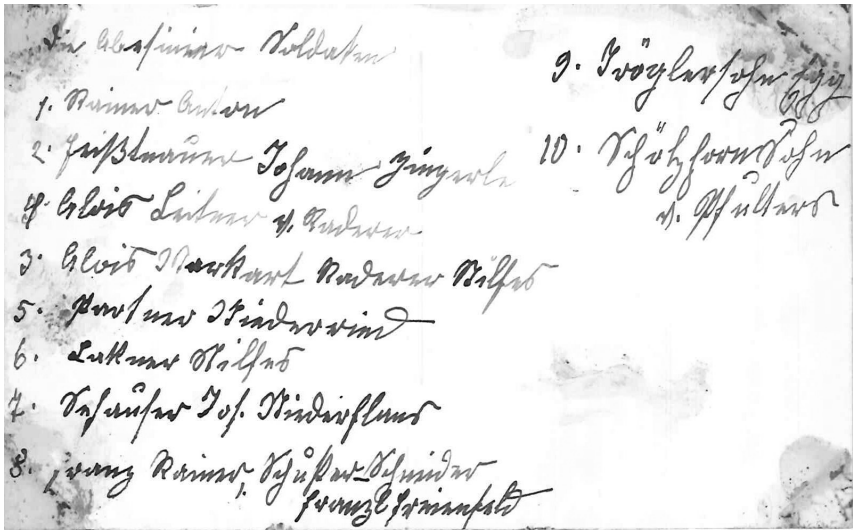 Die Abesinier Soldaten
1. Rainer Anton
2. Johann Zingerle
4. Alois Leitner v. Raderer
3. Alois Markart Raderer Stilfes
5. Partner Niederried
6. Lakner Stilfes
7. Sehauser Jos. Niederflans
8. Franz Rainer, Schuster-Schneider
Franzl Freienfeld
9. Tröglersohn Egg
10. Schölzhornsohn
v. Pfulters